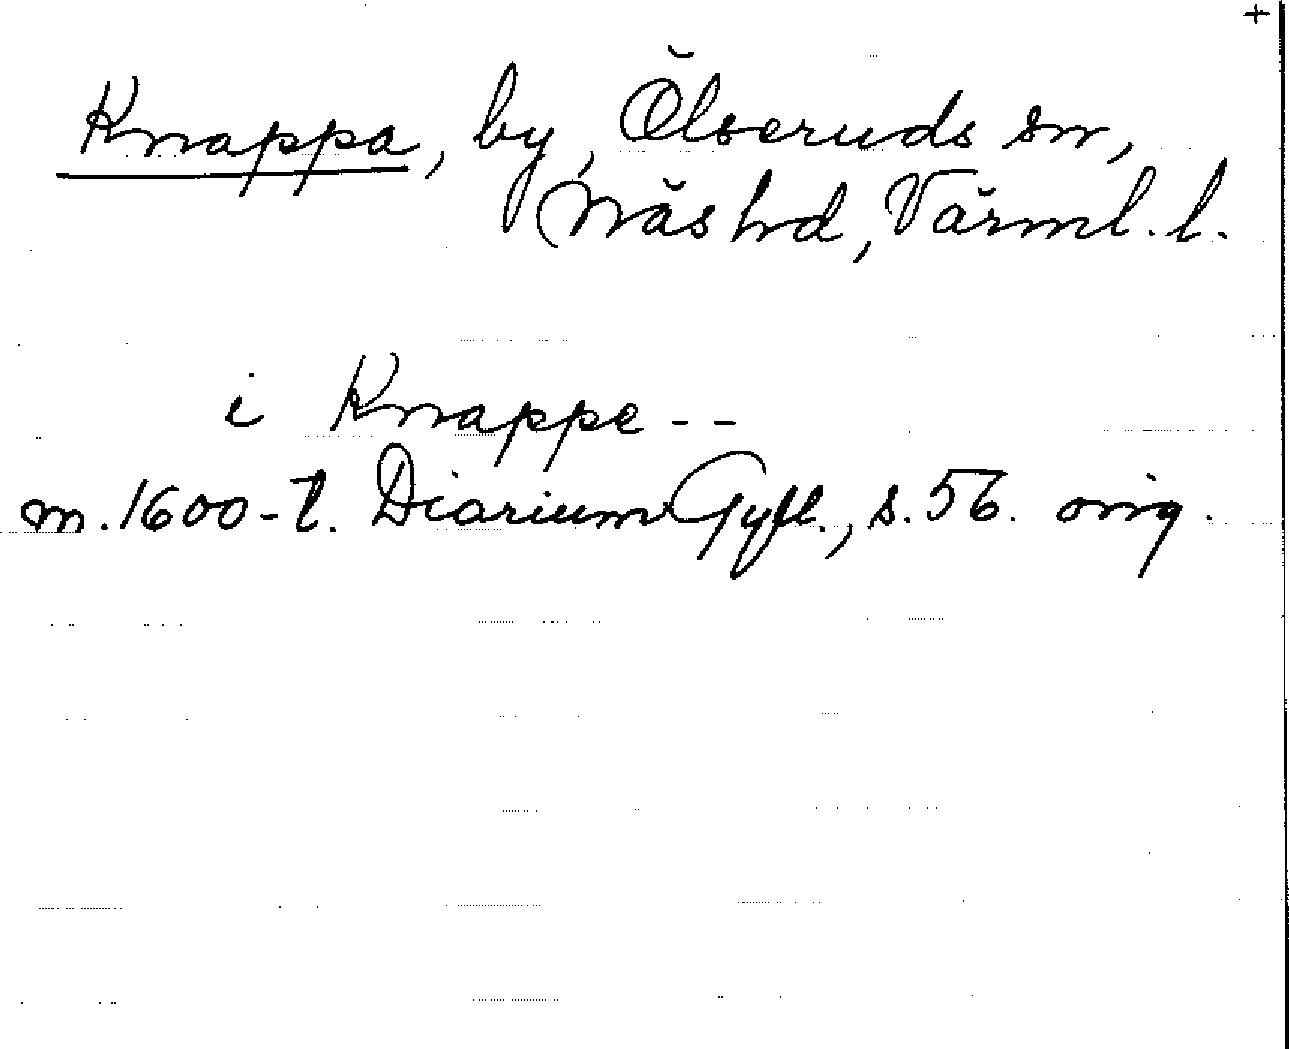 +
Knappa, by, Ölseruds sn,
Näs hd, Värml. l.
i Knappe - -
m. 1600-t. Diarium Gyll., s. 56. orig.